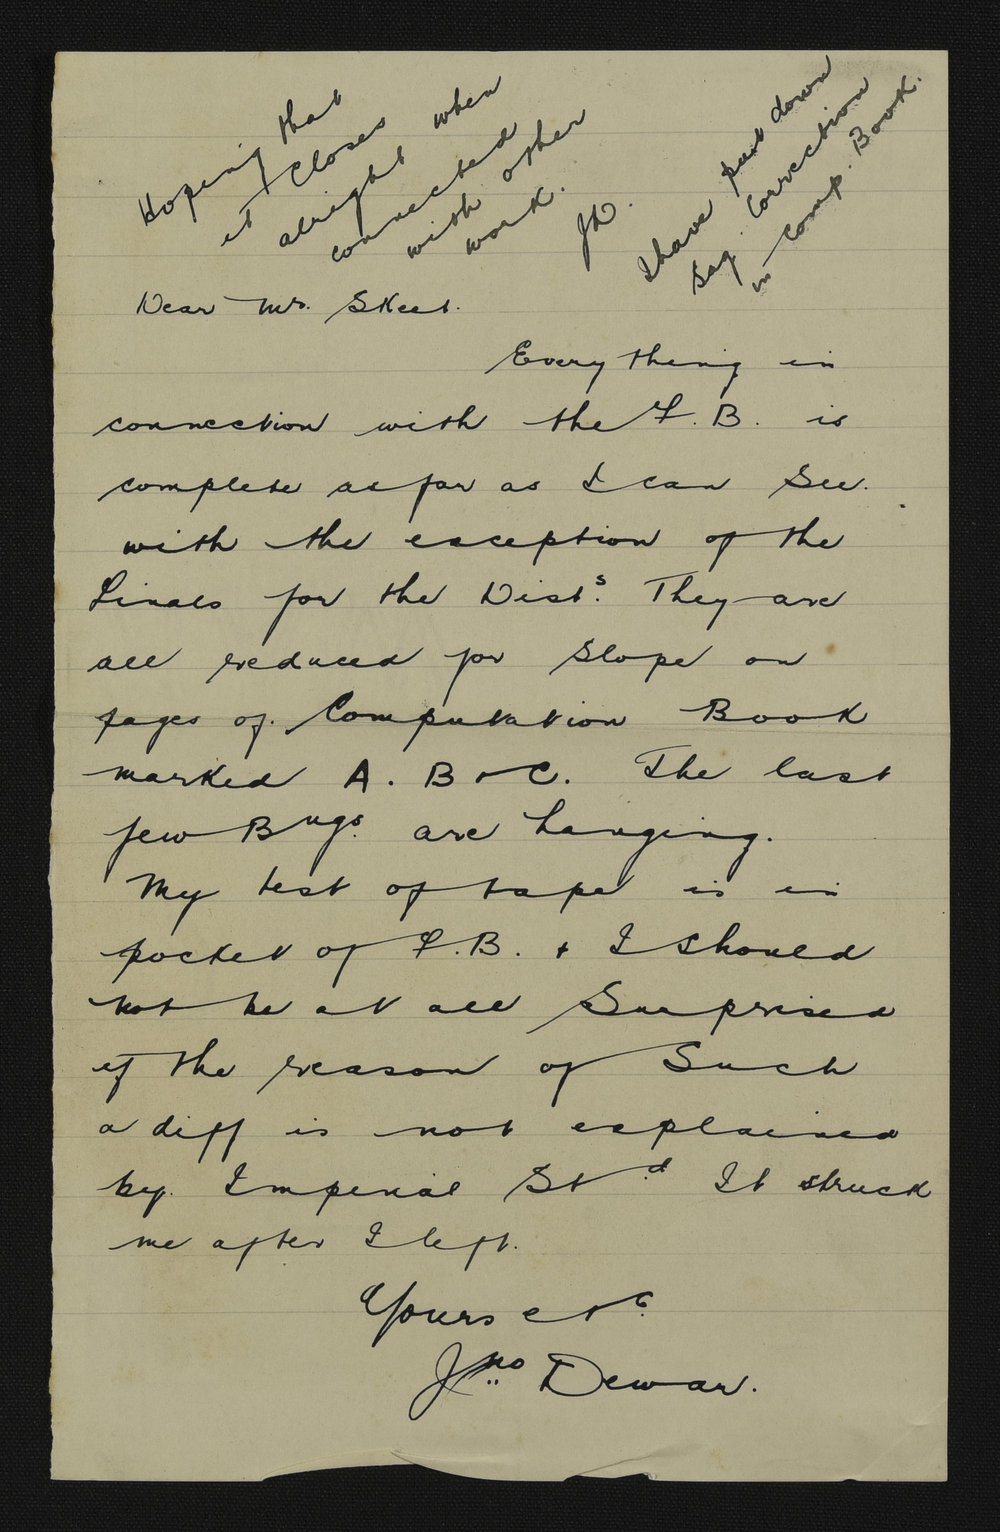 Hoping that
it closes when
alright
connected
with other
work.
JD.
I have put down
Sag. Correction
in Comp. Book.
Dear Mr. Skeet.
Everything in
connection with the F.B. is
complete as far as I can See.
with the exception of the
Finals for the Dists. They are
all reduced for Slope on
pages of Computation Book
marked A. B + C. The last
few Bngs. are hanging.
My test of tape is in
pocket of F.B. + I should
not be at all Surprised
if the reason of Such
a diff is not explained
by. Imperial Std. It struck
me after I left.
Yours etc.
Jno Dewar.